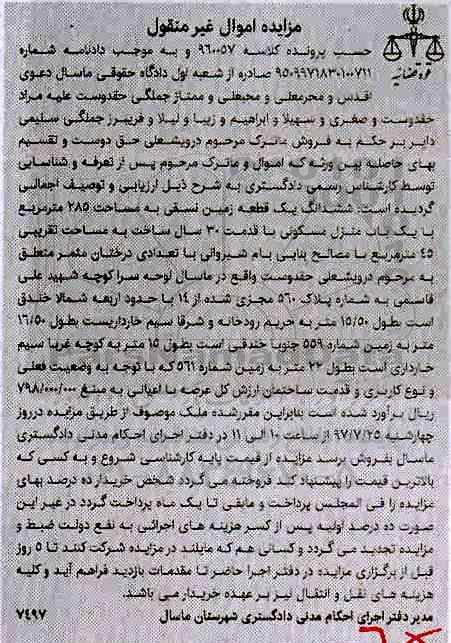 مزایده اموال غیر منقول
قوه قضائیه
حسب پرونده کلاسه ۹۶۰۰۵۷ و به موجب دادنامه شماره
۹۵۰۹۹۷۱۸۳۰۱۰۰۷۱۱ صادره از شعبه اول دادگاه حقوقی ماسال دعوی
اقدس و محرمعلی و محبعلی و ممتاز جملگی حقدوست علیه مراد
حقدوست و صغری و سهیلا و ابراهیم و زیبا و لیلا و فریبرز جملگی سلیمی
دایر بر حکم به فروش ماترک مرحوم درویشعلی حق دوست و تقسیم
بهای حاصله بین ورثه که اموال و ماترک مرحوم پس از تعرفه و شناسایی
توسط کارشناس رسمی دادگستری به شرح ذیل ارزیابی و توصیف اجمالی
گردیده است: ششدانگ یک قطعه زمین نسقی به مساحت ۲۸۵ مترمربع
با یک باب منزل مسکونی با قدمت ۳۰ سال ساخت به مساحت تقریبی
۴۵ مترمربع با مصالح بنایی بام شیروانی با تعدادی درختان مثمر متعلق
به مرحوم درویشعلی حقدوست واقع در ماسال لوحه سرا کوچه شهید علی
قاسمی به شماره پلاک ۵۶۰ مجزی شده از ۱۴ با حدود اربعه شمالا خندق
است بطول ۱۵/۵۰ متر به حریم رودخانه و شرقا سیم خارداریست بطول ۱۶/۵۰
متر به زمین شماره ۵۵۹ جنوبا خندقی است بطول ۱۵ متر به کوچه غربا سیم
خارداری است بطول ۲۲ متر به زمین شماره ۵۶۱ که با توجه به وضعیت فعلی
و نوع کاربری و قدمت ساختمان ارزش کل عرصه با اعیانی به مبلغ ۷۹۸/۰۰۰/۰۰۰
ریال برآورد شده است بنابراین مقرر شده ملک موصوف از طریق مزایده درروز
چهارشنبه ۹۷/۷/۲۵ از ساعت ۱۰ الی ۱۱ در دفتر اجرای احکام مدنی دادگستری
ماسال بفروش برسد مزایده از قیمت پایه کارشناسی شروع و به کسی که
بالاترین قیمت را پیشنهاد کند فروخته می گردد شخص خریدار ده درصد بهای
مزایده را فی المجلس پرداخت و مابقی تا یک ماه پرداخت گردد در غیر این
صورت ده درصد اولیه پس از کسر هزینه های اجرائی به نفع دولت ضبط و
مزایده تجدید می گردد و کسانی هم که مایلند در مزایده شرکت کنند تا ۵ روز
قبل از برگزاری مزایده در دفتر اجرا حاضر تا مقدمات بازدید فراهم آید و کلیه
هزینه های نقل و انتقال نیز بر عهده خریدار می باشد.
مدیر دفتر اجرای احکام مدنی دادگستری شهرستان ماسال
۷۴۹۷